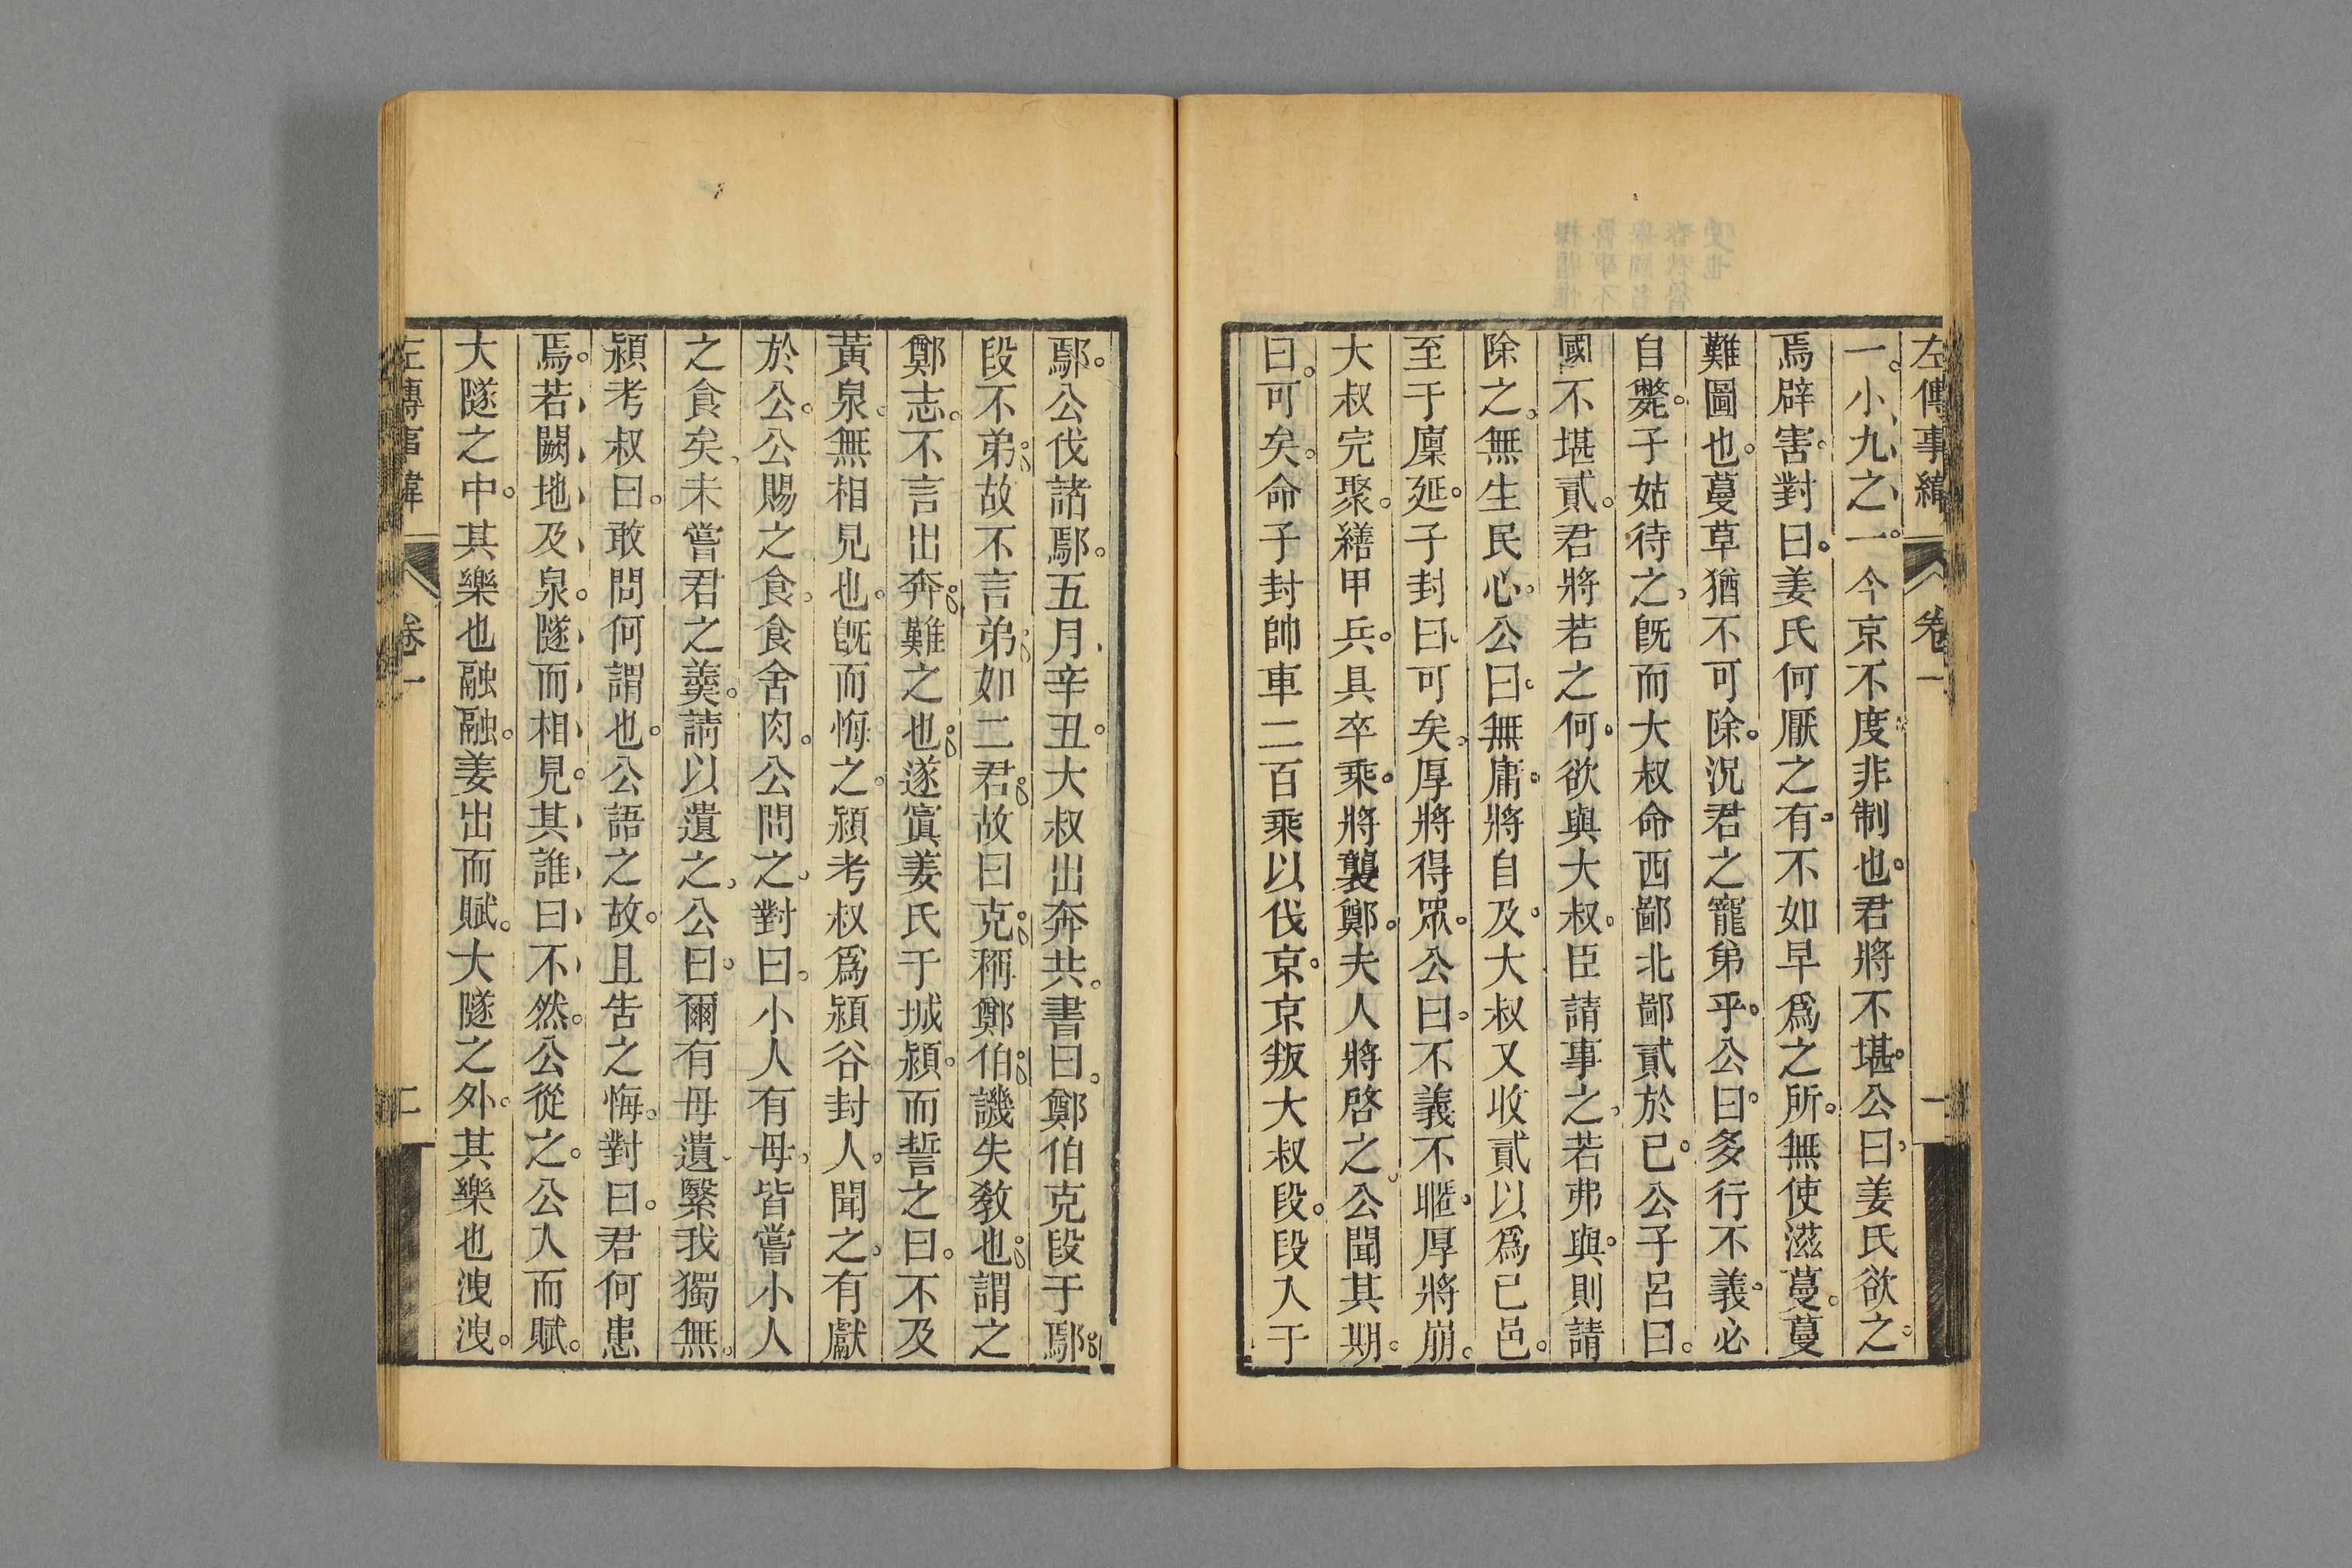 左傳事緯 卷一 一
一。小九之一。今京不度。非制也。君將不堪。公曰。姜氏欲之。
焉辟害。對曰。姜氏何厭之有。不如早爲之所。無使滋蔓。蔓
難圖也。蔓草猶不可除。況君之寵弟乎。公曰。多行不義。必
自斃。子姑待之。旣而大叔命西鄙北鄙貳於已。公子呂曰。
國不堪貳。君將若之何。欲與大叔。臣請事之。若弗與。則請
除之。無生民心。公曰。無庸。將自及。大叔又收貳以爲已邑。
至于廩延。子封曰。可矣。厚將得眾。公曰。不義不暱。厚將崩。
大叔完聚。繕甲兵。具卒乘。將襲鄭。夫人將啓之。公聞其期。
曰。可矣。命子封帥車二百乘以伐京。京叛大叔段。段入于
鄢。公伐諸鄢。五月辛丑。大叔出奔共。書曰。鄭伯克段于鄢。
段不弟。故不言弟。如二君。故曰克。稱鄭伯。譏失敎也。謂之
鄭志。不言出奔。難之也。遂寘姜氏于城潁。而誓之曰。不及
黃泉。無相見也。旣而悔之。潁考叔爲潁谷封人。聞之。有獻
於公。公賜之食。食舍肉。公問之。對曰。小人有母。皆嘗小人
之食矣。未嘗君之羹。請以遺之。公曰。爾有母遺。繄我獨無。
潁考叔曰。敢問何謂也。公語之故。且告之悔。對曰。君何患
焉。若闕地及泉。隧而相見。其誰曰不然。公從之。公入而賦。
大隧之中。其樂也融融。姜出而賦。大隧之外。其樂也洩洩。
左傳事緯 卷一 二